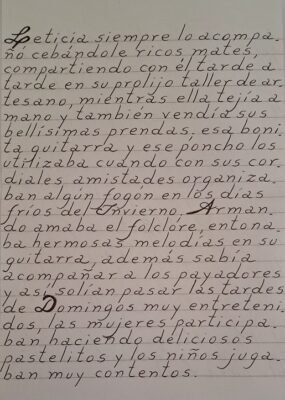 Leticia siempre lo acompa-
ño cebándole ricos mates,
compartiendo con él tarde a
tarde en su prolijo taller de ar-
tesano, mientras ella tejía a
mano y también vendía sus
bellísimas prendas, esa boni-
ta guitarra y ese poncho los
utilizaba cuando con sus cor-
diales amistades organiza-
ban algún fogón en los días
fríos del Invierno, Arman-
do amaba el folclore, entona-
ba hermosas melodías en su
guitarra, además sabía
acompañar a los payadores
y así solían pasar las tardes
de Domingos muy entreteni-
dos, las mujeres participa-
ban haciendo deliciosos
pastelitos y los niños juga-
ban muy contentos.